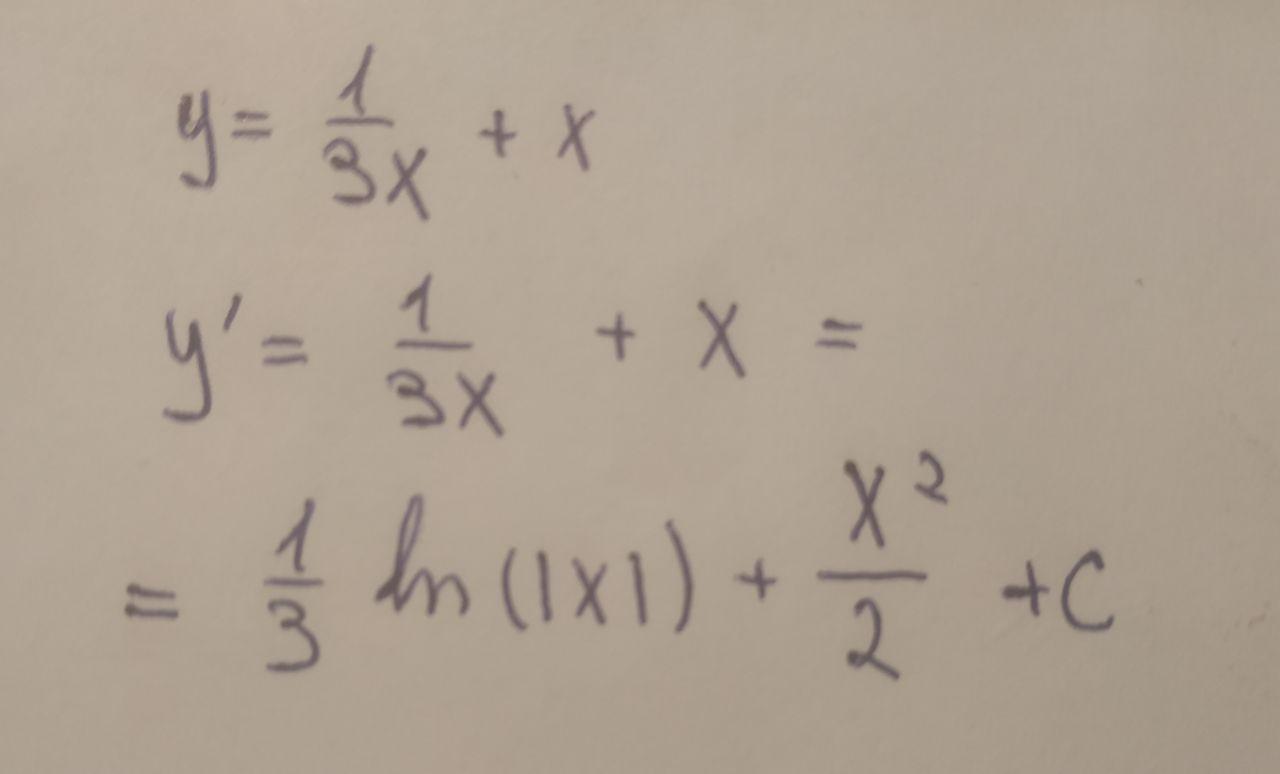 y = 1/3x + x
y' = 1/3x + x =
= 1/3 ln(|x|) + x²/2 + C